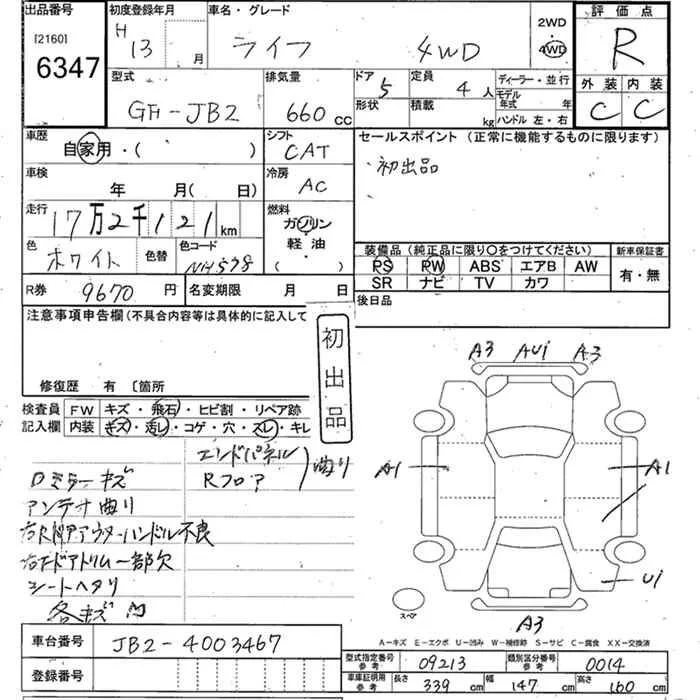 出品番号
[2160]
6347
初度登録年月
H 13 月
車名・グレード
ライフ 4WD
2WD
4WD
評価点
R
外装 内装
C C
型式
GH-JB2
排気量
660 cc
ドア
5
形状
定員
4 人
積載
kg
ディーラー・並行
モデル
年式 年
ハンドル 左・右
車歴
自家用・( )
シフト
CAT
セールスポイント (正常に機能するものに限ります)
初出品
車検
年 月( 日)
冷房
AC
走行
17万2千121km
燃料
ガソリン
軽油
( )
色
ホワイト
色替
色コード
NH578
装備品 (純正品に限り○をつけてください)
PS PW ABS エアB AW
SR ナビ TV カワ
新車保証書
有・無
R券 9670 円
名変期限 月 日
後日品
注意事項申告欄 (不具合内容等は具体的に記入して
初出品
修復歴 有 〔箇所
検査員
記入欄
FW キズ・飛石・ヒビ割・リペア跡
内装 キズ・汚レ・コゲ・穴・スレ・キレ
エンドパネル
Rフロア
曲り
ロミラーキズ
アンテナ曲り
右Rドアアウターハンドル不良
右Fドアトリム一部欠
シートヘタリ
各キズ凹
A3 AU1 A3
A1 A1
U1
スペア
A3
A-キズ E-エクボ U-凹み W-補修跡 S-サビ C-腐食 XX-交換済
車台番号 JB2-4003467
登録番号
型式指定番号
参考
09213
類別区分番号
参考
0014
車庫証明用
参考
長さ 339 cm 幅 147 cm 高さ 160 cm